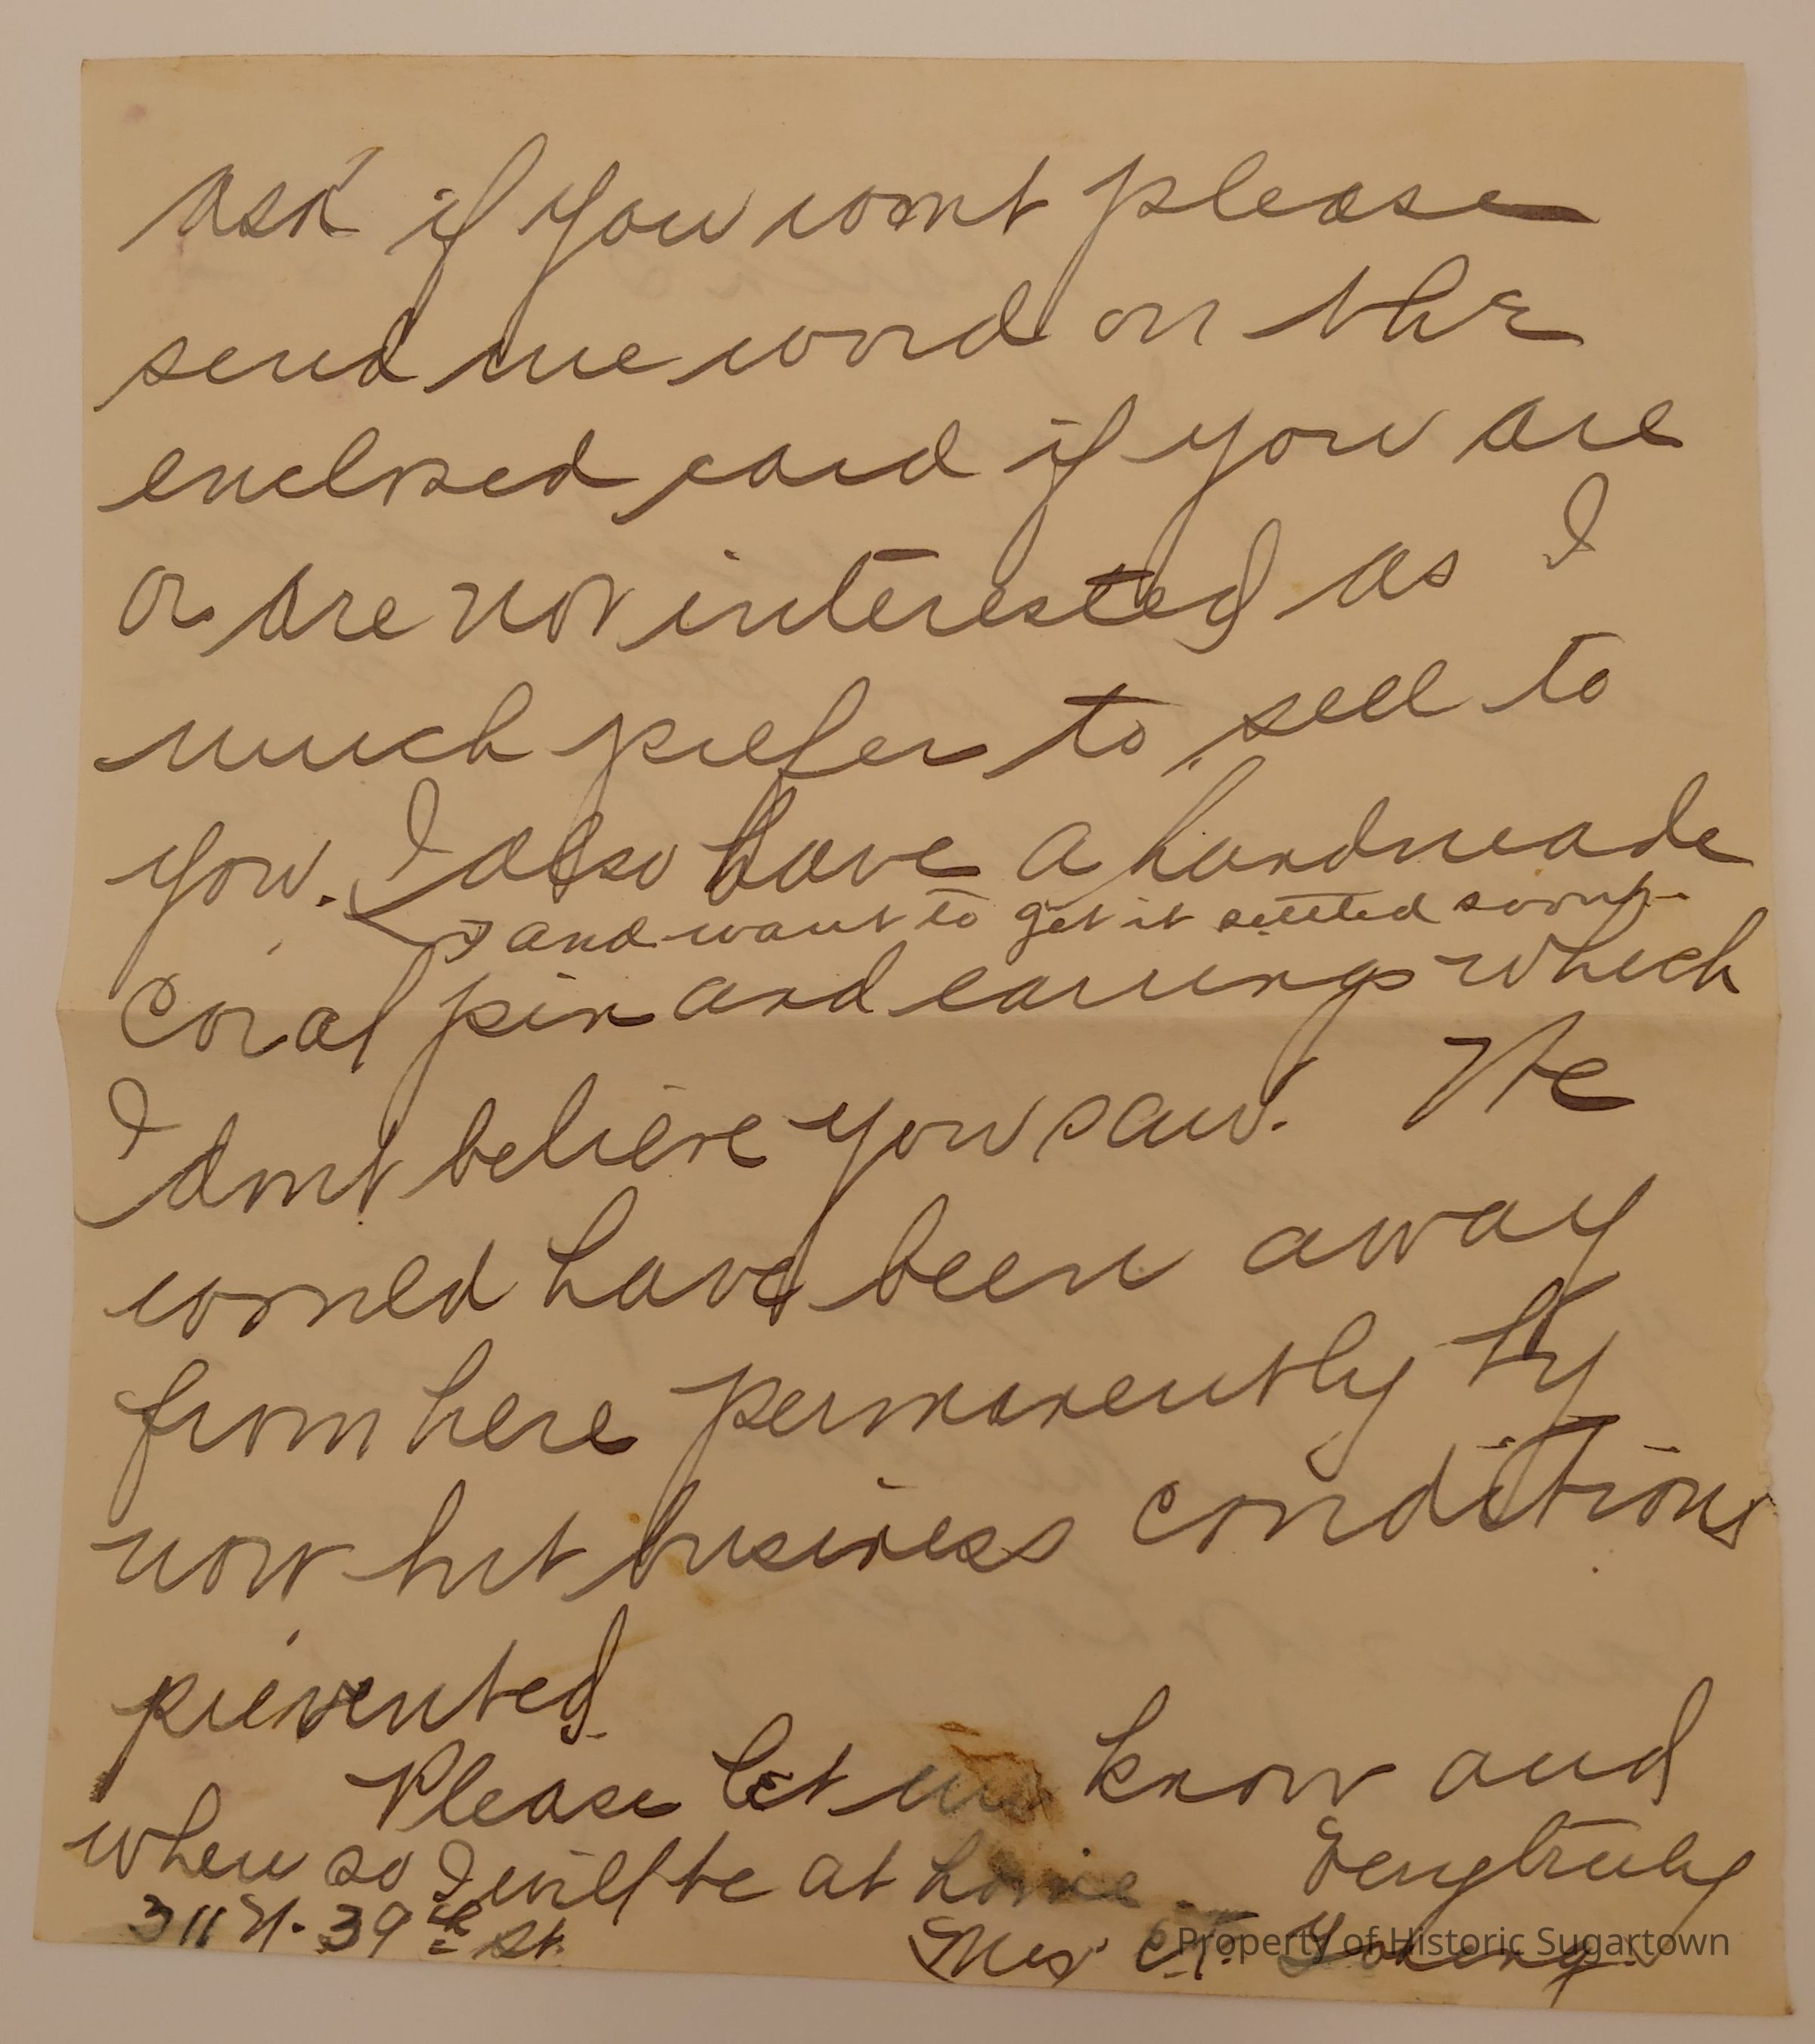 ask if you wont please
send me word on the
enclosed card if you are
or are not interested as I
much prefer to sell to
you. I also have a handmade
and want to get it settled soon
coral pin and earrings which
I dont believe you saw. We
would have been away
from here permanently by
now but business conditions
prevented
Please let me know and
when so I will be at home. Very truly
311 N. 39th St. Mrs C.T. Young
Property of Historic Sugartown